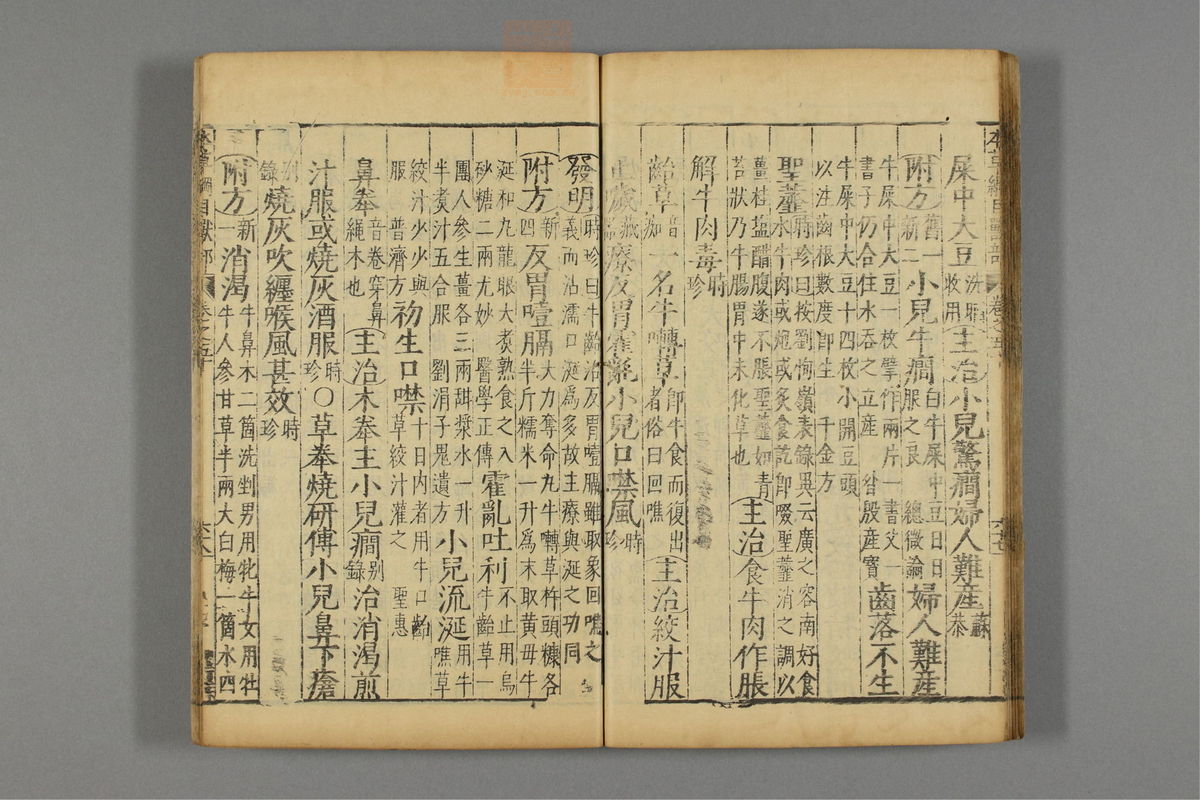 屎中大豆洗晒收用主治小兒驚癎婦人難産蘇恭
附方舊一新二小兒牛癎白牛屎中豆日日服之良總微論婦人難産
牛屎中大豆一枚擘作兩片一書父一書子仍合住水吞之立産昝殷産寶齒落不生
牛屎中大豆十四枚小開豆頭以注齒根數度卽生千金方
聖虀時珍曰按劉恂嶺表錄異云廣之容南好食水牛肉或炮或炙食訖卽啜聖虀消之調以
薑桂塩醋腹遂不脹聖虀如青苔狀乃牛腸胃中未化草也主治食牛肉作脹
解牛肉毒時珍
齝草音痴一名牛轉草卽牛食而復出者俗曰回噍主治絞汁服
止噦藏器療反胃霍亂小兒口噤風時珍
發明時珍曰牛齝治反胃噎膈雖取象回噍之義而沾濡口涎爲多故主療與涎之功同
附方新四反胃噎膈大力奪命丸牛轉草杵頭糠各半斤糯米一升爲末取黄母牛
涎和丸龍眼大煮熟食之入砂糖二兩尤妙醫學正傳霍亂吐利不止用烏牛齝草一
團人參生薑各三兩甜漿水一升半煮汁五合服劉涓子鬼遺方小兒流涎用牛噍草
絞汁少少與服普濟方初生口噤十日内者用牛口齝草絞汁灌之聖惠
鼻拳音卷穿鼻繩木也主治木拳主小兒癎別錄治消渴煎
汁服或燒灰酒服時珍〇草拳燒研傅小兒鼻下瘡
別錄燒灰吹纏喉風甚效時珍
附方新一消渴牛鼻木二箇洗剉男用牝牛女用牡牛人參甘草半兩大白梅一箇水四